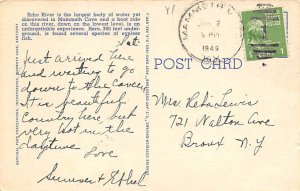 Echo River is the largest body of water yet
discovered in Mammoth Cave and a boat ride
on this river, down on the lowest level, is an
unforgettable experience. Here, 360 feet under-
ground, is found several species of eyeless
fish.
Sat.
Just arrived here
and waiting to go
down to the Caverns
It is a beautiful
Country here but
very hot in the
daytime
Love
Sumner & Ethel
MAMMOTH CAVE
JUL 2
3 PM
1949
KY.
1
POST CARD
Mrs Reba Lewis
721 Walton Ave
Bronx N.Y